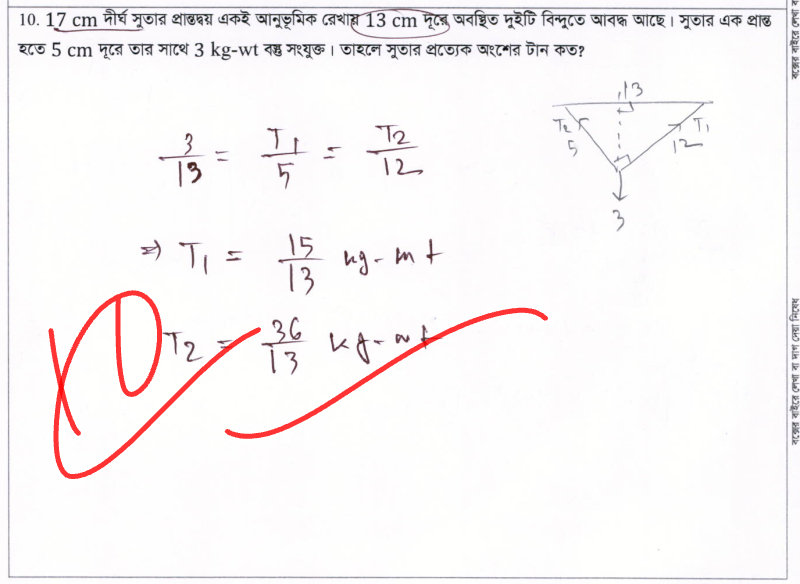 10. 17 cm দীর্ঘ সুতার প্রান্তদ্বয় একই আনুভূমিক রেখায় 13 cm দূরে অবস্থিত দুইটি বিন্দুতে আবদ্ধ আছে। সুতার এক প্রান্ত
হতে 5 cm দূরে তার সাথে 3 kg-wt বস্তু সংযুক্ত। তাহলে সুতার প্রত্যেক অংশের টান কত?
13
T2 T1
5 12
3
3/13 = T1/5 = T2/12
⇒ T1 = 15/13 kg-wt
T2 = 36/13 kg-wt
10
বক্সের বাইরে লেখা বা দাগ দেয়া নিষেধ